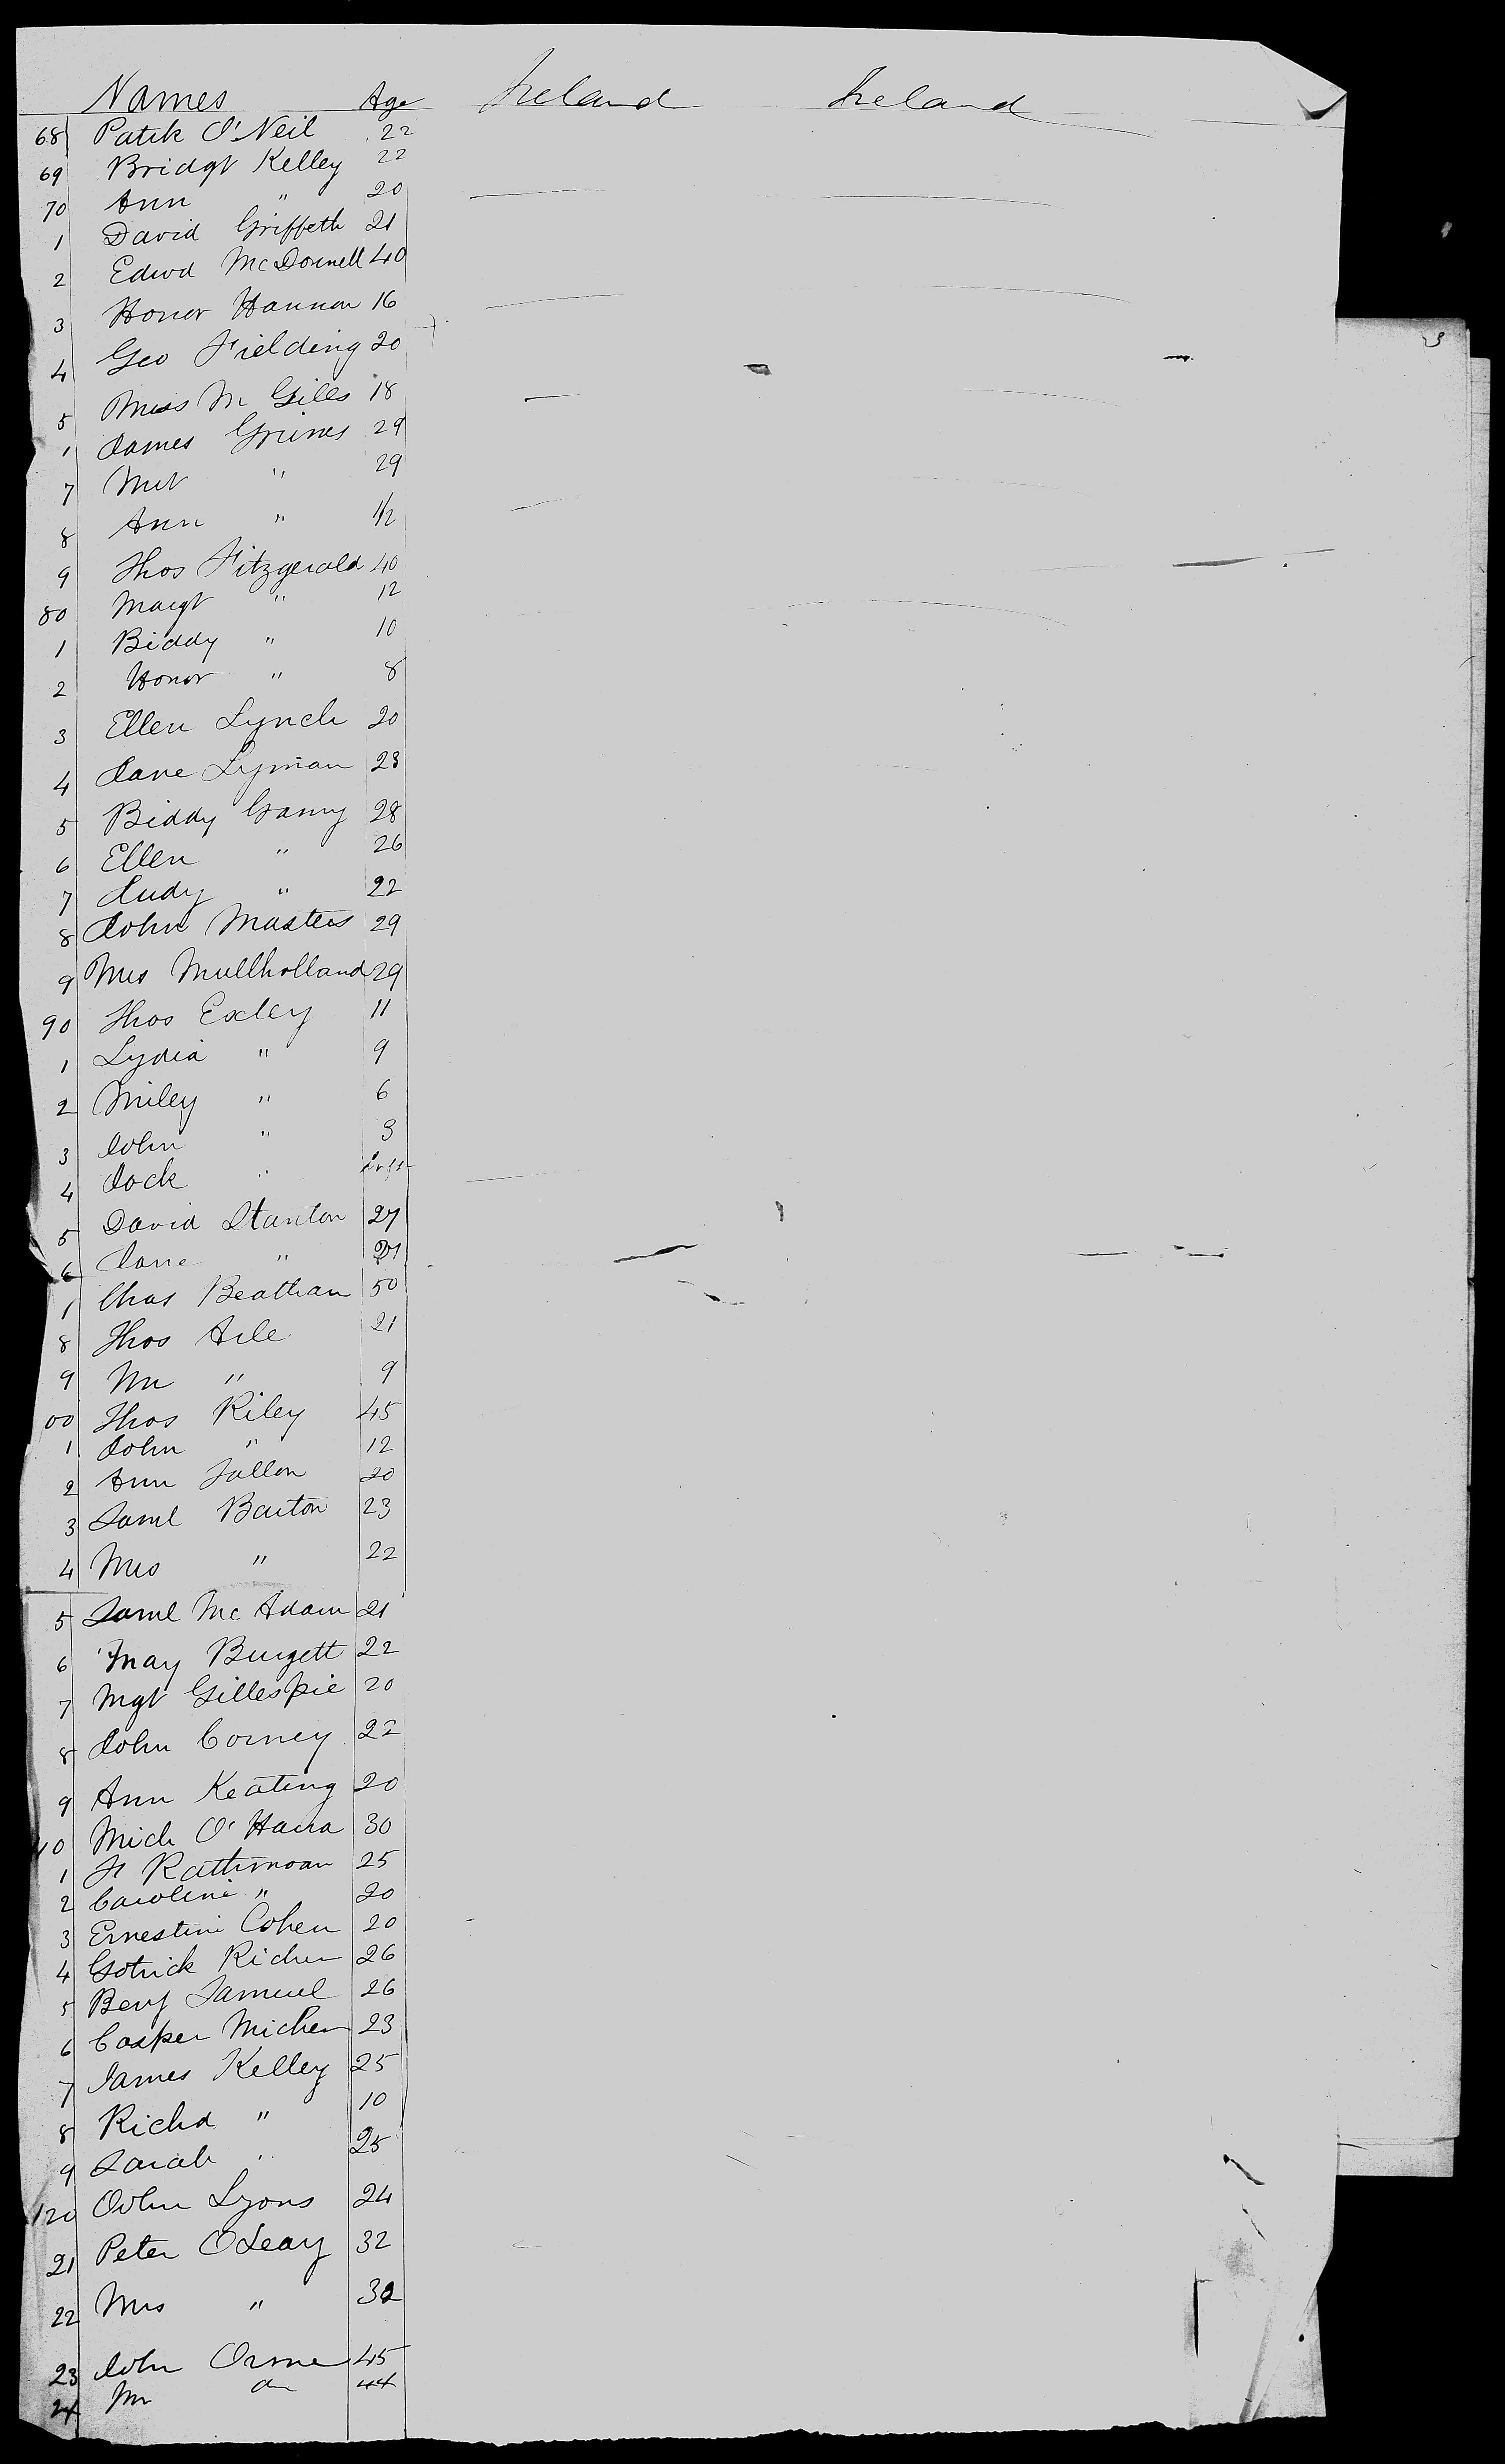 Names Age Ireland Ireland
68 Patik O'Neil 22
69 Bridgt Kelley 22
70 Ann " 20
1 David Griffeth 21
2 Edwd McDonnell 40
3 Honor Hannon 16
4 Geo Fielding 20
5 Miss M Gilles 18
James Grimes 29
7 " 29
8 Ann " 1/2
9 Thos Fitzgerald 40
80 Margt " 12
1 Biddy " 10
2 Honor " 8
3 Ellen Lynch 20
4 Jane Lyman 23
5 Biddy 28
6 Ellen " 26
7 Judy " 22
8 John Masters 29
9 Mrs Mullholland 29
90 Thos Exley 11
1 Lydia " 9
2 Miley " 6
3 John " 3
4 Jock "
5 David Stanton 27
6 Jane " 21
Chas Beathan 50
8 Thos 21
9 " 9
00 Thos Riley 45
1 John " 12
2 Ann Fallon 20
3 Saml Barton 23
4 Mrs " 22
5 Saml McAdam 21
6 May Burgett 22
7 Mgt Gillespie 20
8 John Corney 22
9 Ann Keating 20
10 Mich O'Hara 30
1 Rathmoan 25
2 Caroline " 20
3 Ernestine Cohen 20
4 Gotrick Richer 26
5 Benj Samuel 26
6 Casper Micher 23
7 James Kelley 25
8 Richd " 10
9 Sarah " 25
120 John Lyons 24
21 Peter OLeary 32
22 Mrs " 32
23 John Orme 45
24 44